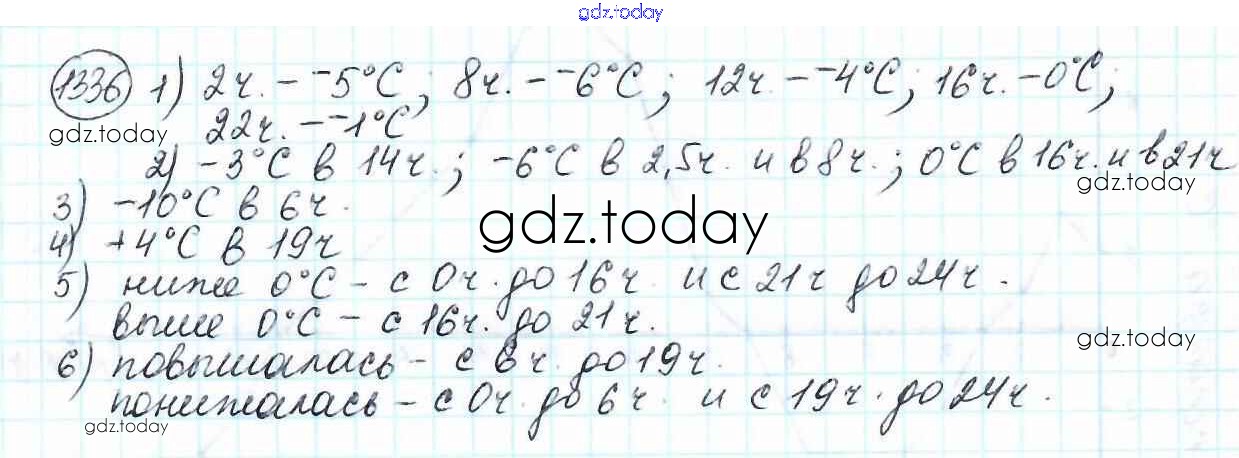 gdz.today
1336 1) 2ч. - -5°С; 8ч. - -6°С; 12ч. - -4°С; 16ч. - 0°С;
gdz.today 22ч. - -1°С
2) -3°С в 14ч.; -6°С в 2,5ч. и в 8ч.; 0°С в 16ч. и в 21ч
gdz.today
3) -10°С в 6ч.
gdz.today
4) +4°С в 19ч
5) ниже 0°С - с 0ч. до 16ч и с 21ч до 24ч.
выше 0°С - с 16ч. до 21ч.
gdz.today
6) повышалась - с 6ч. до 19ч.
понижалась - с 0ч. до 6ч. и с 19ч. до 24ч.
gdz.today